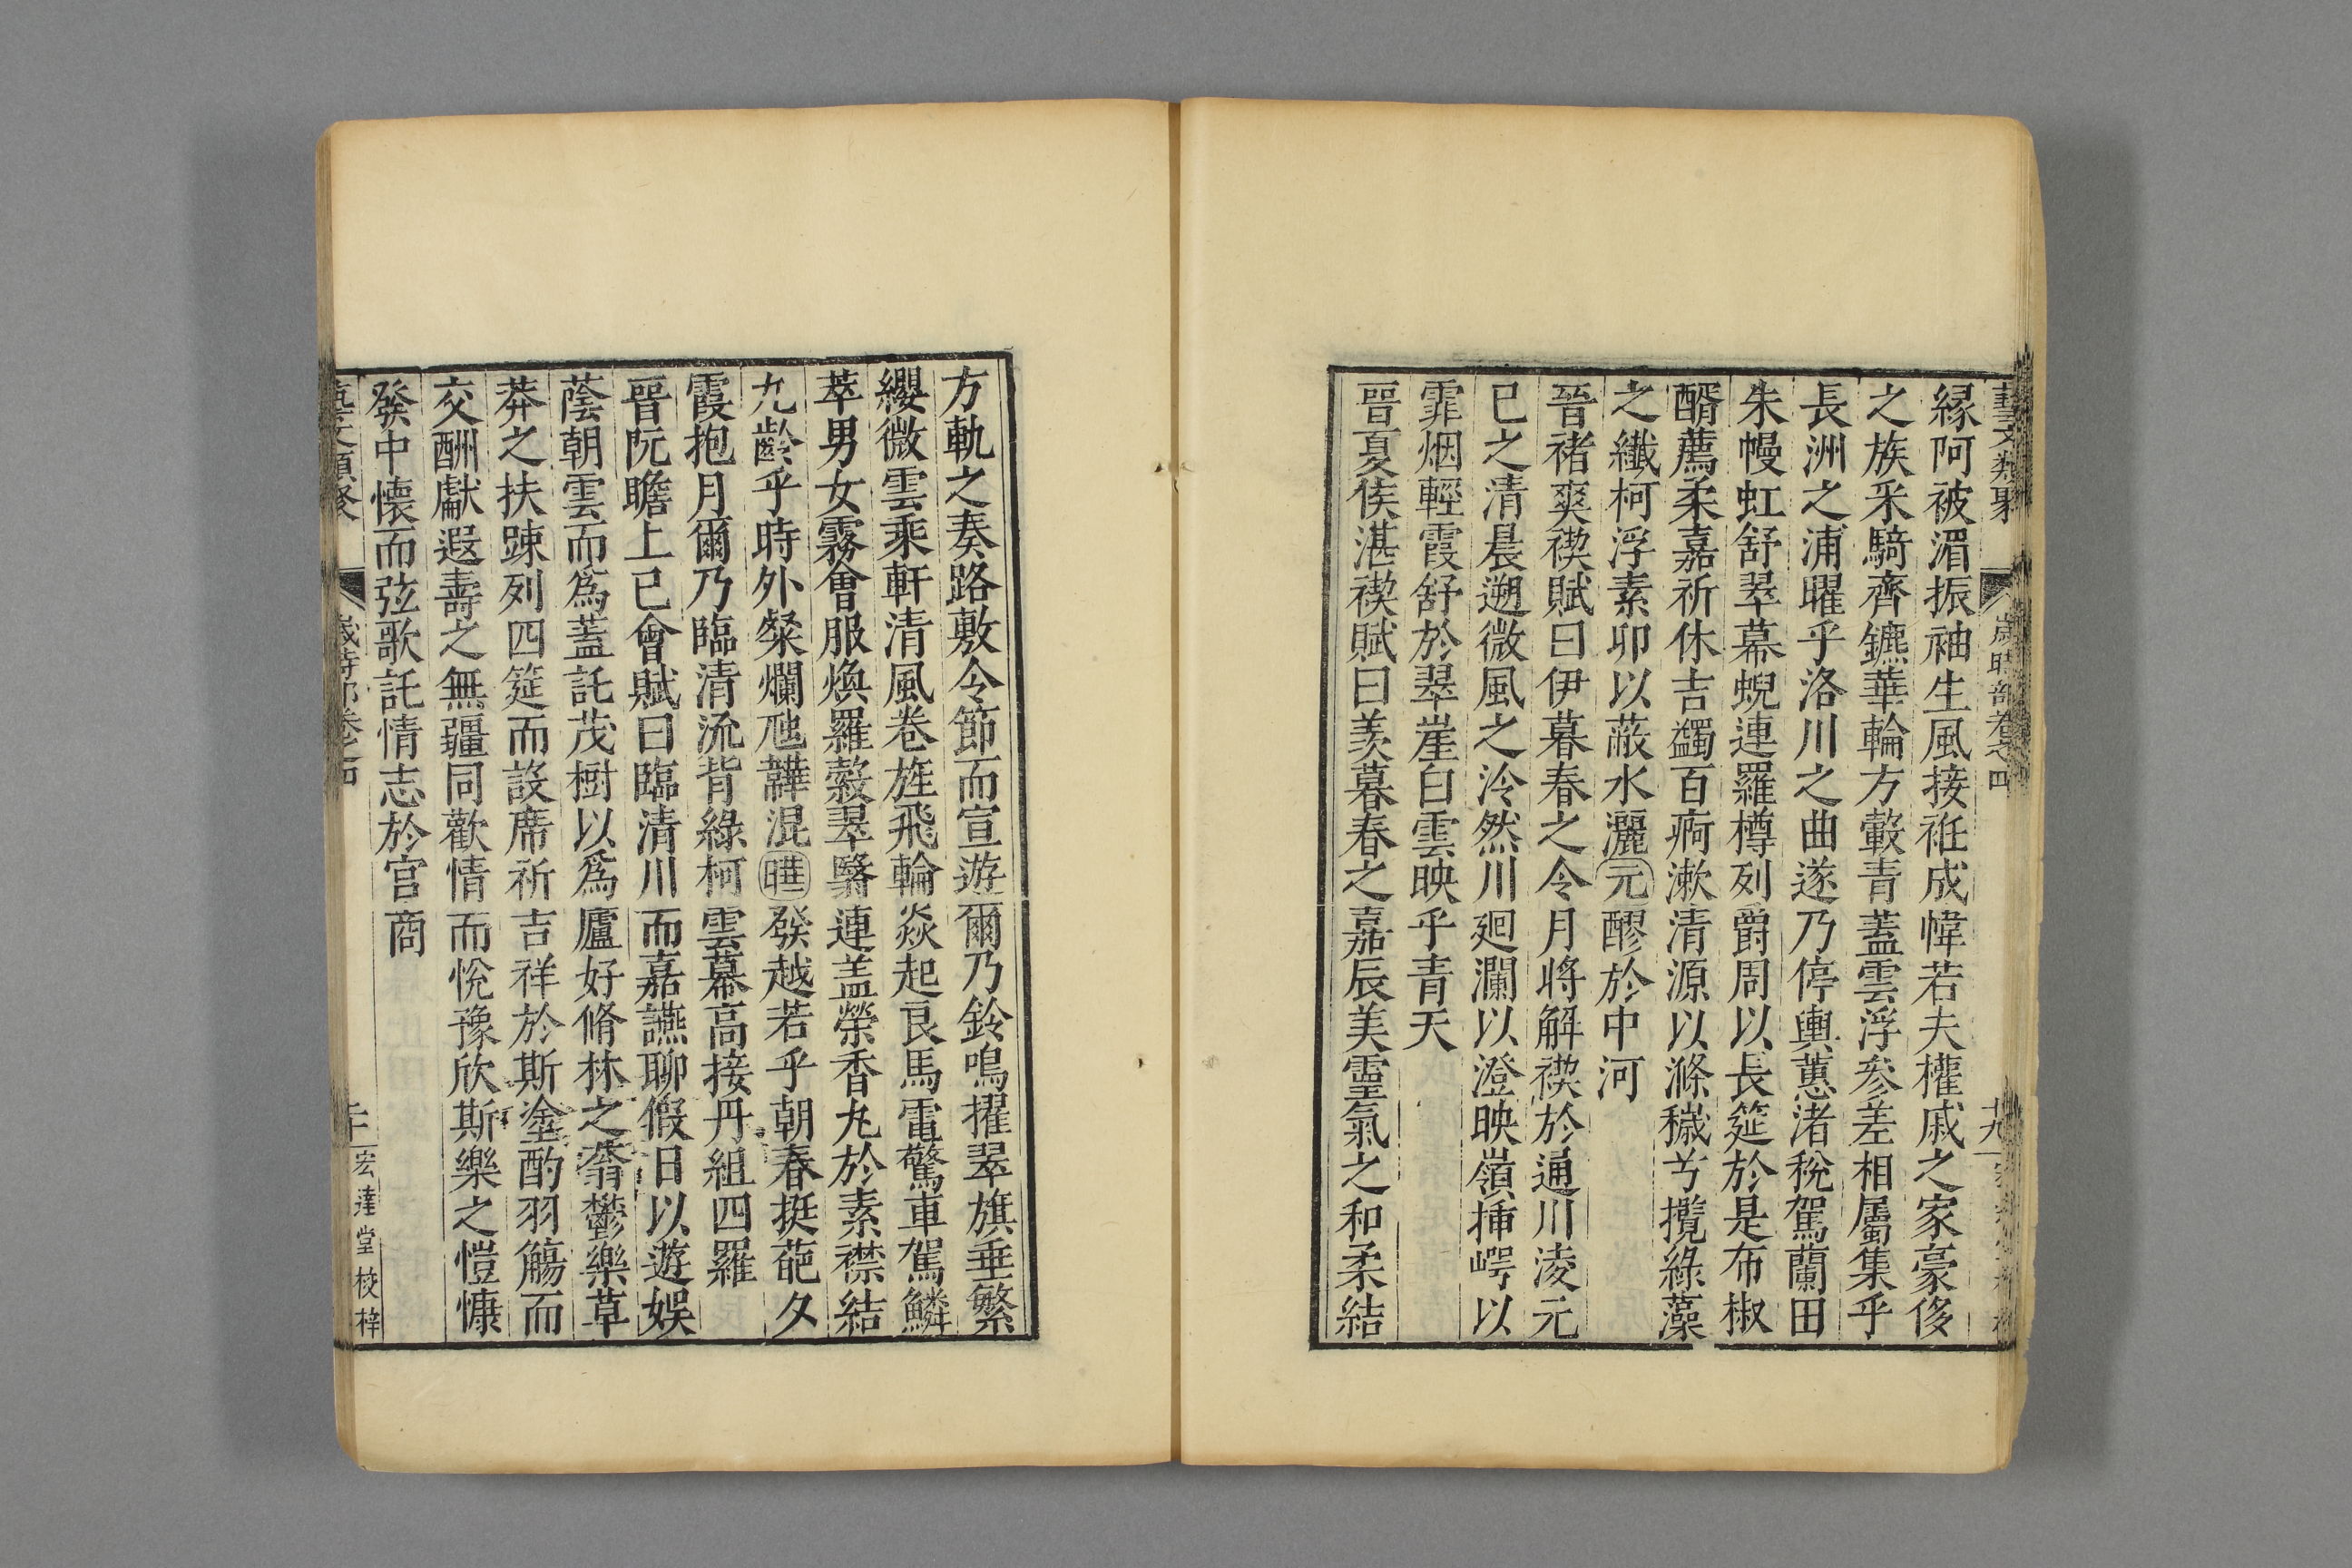 藝文類聚 歲時部卷之四 十九
緣阿被湄振袖生風接袵成幃若夫權戚之家豪侈
之族采騎齊鑣華輪方轂青蓋雲浮參差相屬集乎
長洲之浦曜乎洛川之曲遂乃停輿蕙渚稅駕蘭田
朱幔虹舒翠幕蜺連羅樽列爵周以長筵於是布椒
醑薦柔嘉祈休吉蠲百痾漱清源以滌穢兮攬綠藻
之纖柯浮素卵以蔽水灑元醪於中河
晉褚爽禊賦曰伊暮春之令月將解禊於通川淩元
巳之清晨遡微風之泠然川迴瀾以澄映嶺揷崿以
霏烟輕霞舒於翠崖白雲映乎青天
晉夏侯湛禊賦曰羨暮春之嘉辰美靈氣之和柔結
方軌之奏路敷令節而宣遊爾乃鈴鳴擢翠旗垂繁
纓微雲乘軒清風卷旌飛輪焱起良馬電驚車駕鱗
萃男女霧會服煥羅縠翠翳連盖榮香丸於素襟結
九齡乎時外粲爛虺韡混曄發越若乎朝春挺葩夕
霞抱月爾乃臨清流背綠柯雲幕高接丹組四羅
晉阮瞻上已會賦曰臨清川而嘉讌聊假日以遊娛
蔭朝雲而爲蓋託茂樹以爲廬好脩林之蓊鬱樂草
莽之扶踈列四筵而設席祈吉祥於斯塗酌羽觴而
交酬獻遐壽之無疆同歡情而悅豫欣斯樂之愷慷
發中懷而弦歌託情志於宮商
藝文類聚 歲時部卷之四 二十 宏達堂校梓